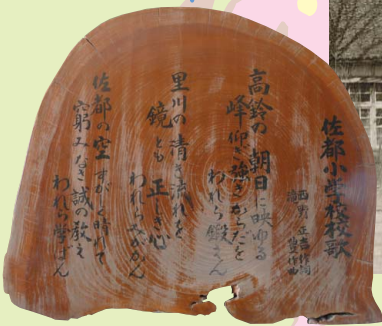 佐都小学校校歌
高鈴の朝日に映ゆる
峰仰ぎ強きからだを
われら鍛えん
里川の清き流れを
鏡とも正しき心
われらみがかん
佐都の空すがしく晴れて
窮みなき誠の教え
われら学ばん